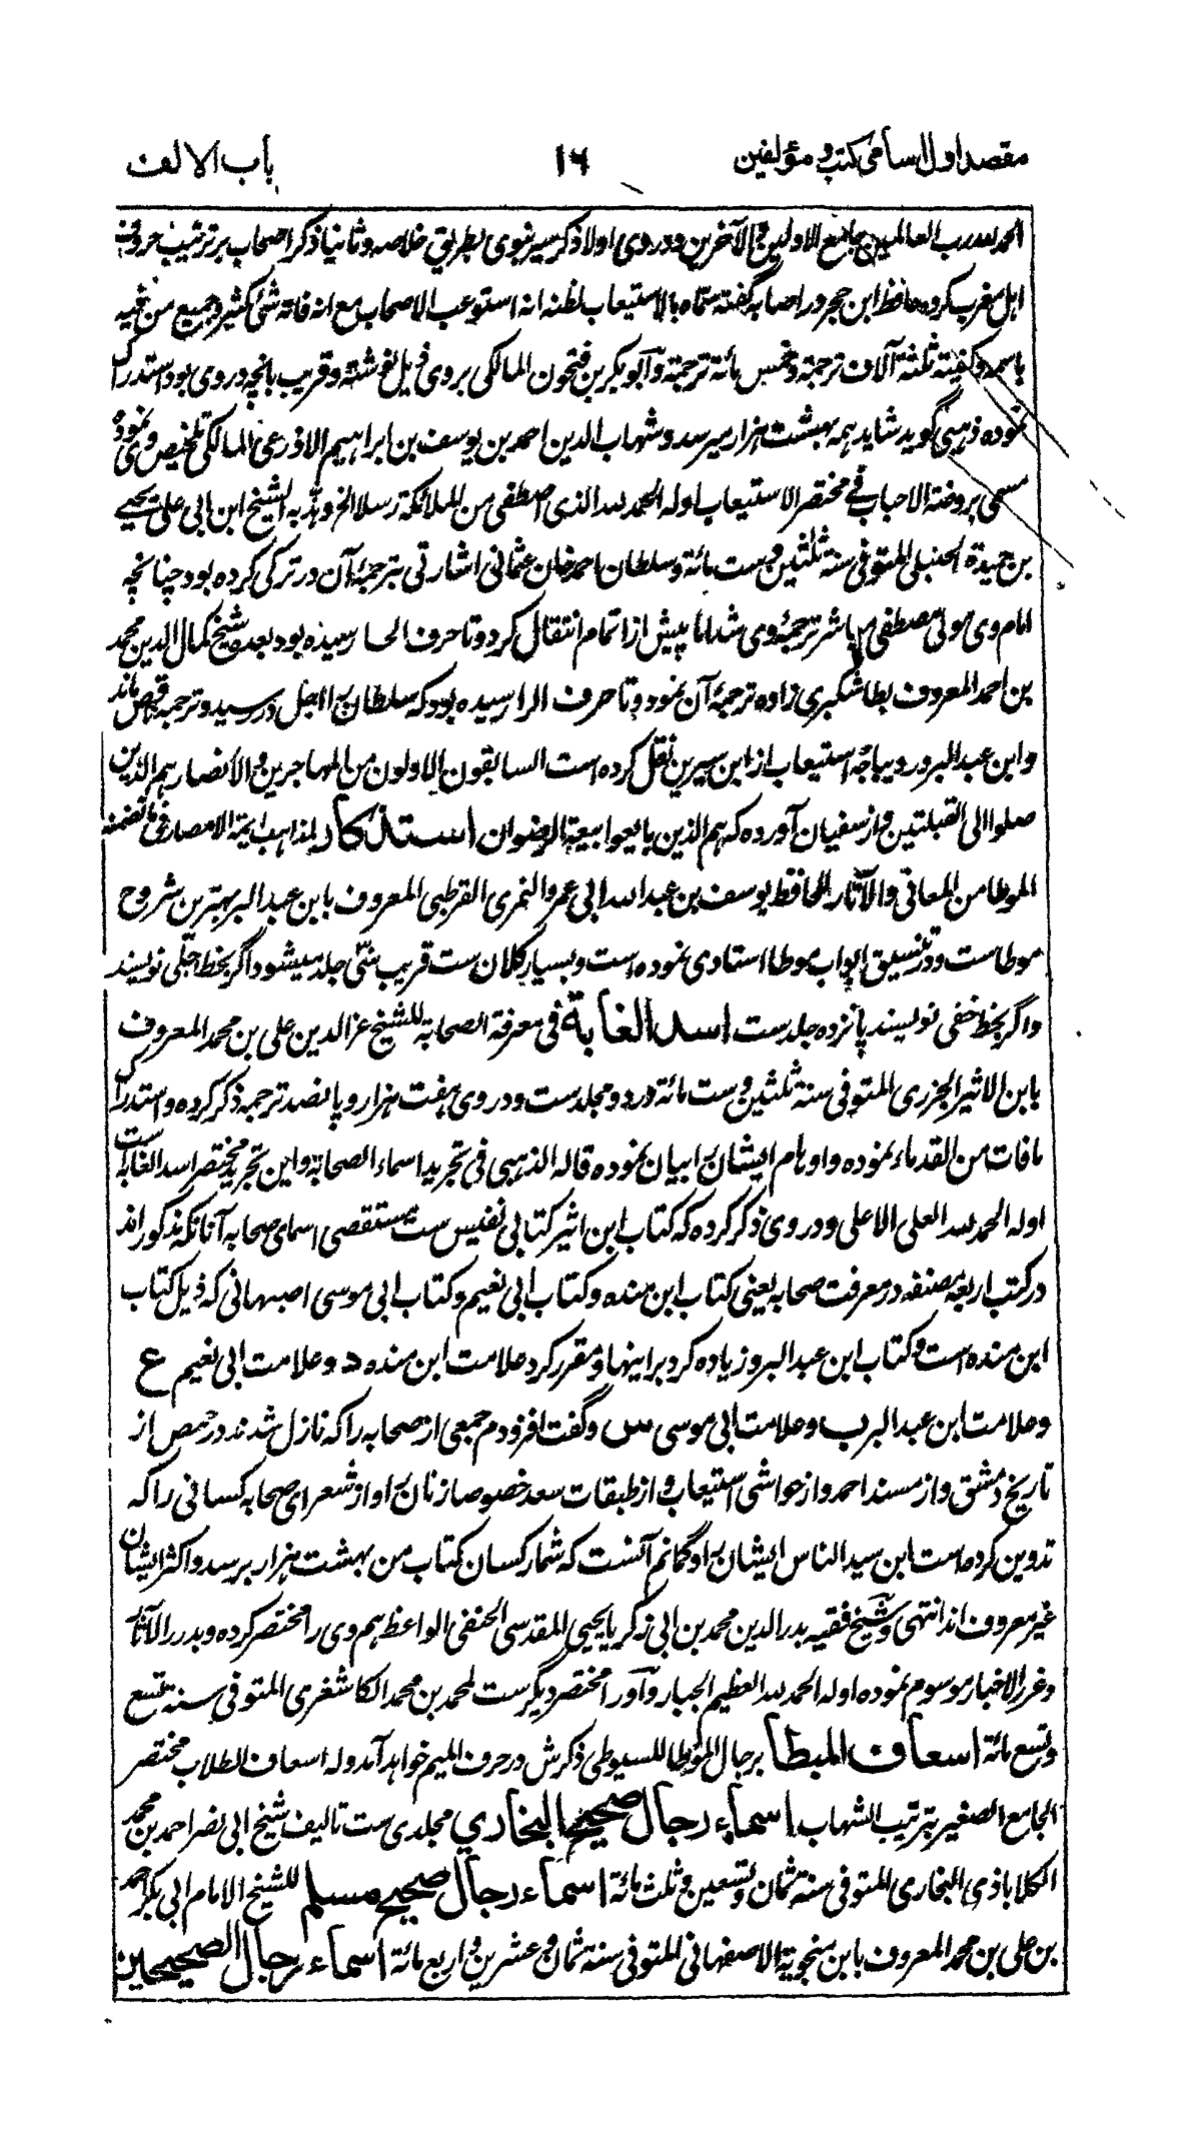 مقصد اول اسامی کتب و مؤلفین ۱۶ باب الالف
الحمد لله رب العالمین جامع الاولین والآخرین و در وی اولا ذکر سیر نبوی بطریق خلاصه و ثانیا ذکر اصحاب بر ترتیب حروف
اهل مغرب کرده حافظ ابن حجر در اصابه گفته سماه بالاستیعاب لظنه انه استوعب الاصحاب مع انه فاته شئ کثیر و جمیع من فیه
باسمه و کنیته ثلثة آلاف ترجمة و خمس مائة ترجمة و ابو بکر بن فتحون المالکی بر وی ذیل نوشته و قریب بانچه در وی بود استدراک
نموده ذهبی گوید شاید همه بهشت هزار میرسد و شهاب الدین احمد بن یوسف بن ابراهیم الاذرعی المالکی تلخیص وی نموده
مسمی بروضة الاحباب فی مختصر الاستیعاب اوله الحمد لله الذی اصطفی من الملائکة رسلا الخ و هذبه الشیخ ابن ابی علی یحیی
بن حمیدة الحنبلی المتوفی سنة ثلثین و ست مائة و سلطان احمد خان عثمانی اشارتی بترجمهٔ آن در ترکی کرده بود چنانچه
امام وی مولی مصطفی مباشر ترجمهٔ وی شد اما پیش از اتمام انتقال کرد و تا حرف الحا رسیده بود بعده شیخ کمال الدین محمد
بن احمد المعروف بطاشکبری زاده ترجمهٔ آن نمود و تا حرف الرا رسیده بود که سلطان را اجل در رسید و ترجمه ناقص ماند
و ابن عبد البر در دیباجهٔ استیعاب از ابن سیرین نقل کرده است السابقون الاولون من المهاجرین والانصار هم الذین
صلوا الی القبلتین و از سفیان آورده که هم الذین بایعوا بیعة الرضوان استذکار لمذاهب ایمة الامصار فی ما تضمنه
الموطا من المعانی والآثار للحافظ یوسف بن عبد الله ابی عمرو النمری القرطبی المعروف بابن عبد البر بهترین شروح
موطاست و در تنسیق ابواب موطا استادی نموده است و بسیار کلان ست قریب بسّی جلد میشود اگر بخط جلی نویسند
و اگر بخط خفی نویسند پانزده جلدست اسد الغابة فی معرفة الصحابة للشیخ عز الدین علی بن محمد المعروف
بابن الاثیر الجزری المتوفی سنة ثلثین و ست مائة در دو مجلدست و در وی هفت هزار و پانصد ترجمه ذکر کرده و استدراک
ما فات من القدماء نموده و اوهام ایشان را بیان نموده قاله الذهبی فی تجرید اسماء الصحابة و این تجرید مختصر اسد الغابه ست
اوله الحمد لله العلی الاعلی و در وی ذکر کرده که کتاب ابن اثیر کتابی نفیس ست مستقصی اسمای صحابه آنانکه مذکور اند
در کتب اربعه مصنفه در معرفت صحابه یعنی کتاب ابن منده و کتاب ابی نعیم و کتاب ابی موسی اصبهانی که ذیل کتاب
ابن منده است و کتاب ابن عبد البر و زیاده کرد بر اینها و مقرر کرد علامت ابن منده د و علامت ابی نعیم ع
و علامت ابن عبد البر ب و علامت ابی موسی س و گفت افزودم جمعی از صحابه را که نازل شدند در حمص از
تاریخ دمشق و از مسند احمد و از حواشی استیعاب و از طبقات سعد خصوصا زنان را و از شعرای صحابه کسانی را که
تدوین کرده است ابن سید الناس ایشان را و گمانم آنست که شمار کسان کتاب من بهشت هزار برسد و اکثر ایشان
غیر معروف اند انتهی و شیخ فقیه بدر الدین محمد بن ابی زکریا یحیی المقدسی الحنفی الواعظ هم وی را مختصر کرده و بدرر الآثار
و غرر الاخبار موسوم نموده اوله الحمد لله العظیم الجبار و آن را مختصر دیگرست لمحمد بن محمد الکاشغری المتوفی سنة تسع
و تسع مائة اسعاف المبطا برجال المؤطا للسیوطی ذکرش در حرف المیم خواهد آمد وله اسعاف الطلاب مختصر
الجامع الصغیر بترتیب الشهاب اسماء رجال صحیح البخاري مجلدی ست تالیف شیخ ابی نصر احمد بن محمد
الکلاباذی البخاری المتوفی سنة ثمان و تسعین و ثلث مائة اسماء رجال صحیح مسلم للشیخ الامام ابی بکر احمد
بن علی بن محمد المعروف بابن منجویة الاصفهانی المتوفی سنة ثمان و عشرین و اربع مائة اسماء رجال الصحیحین